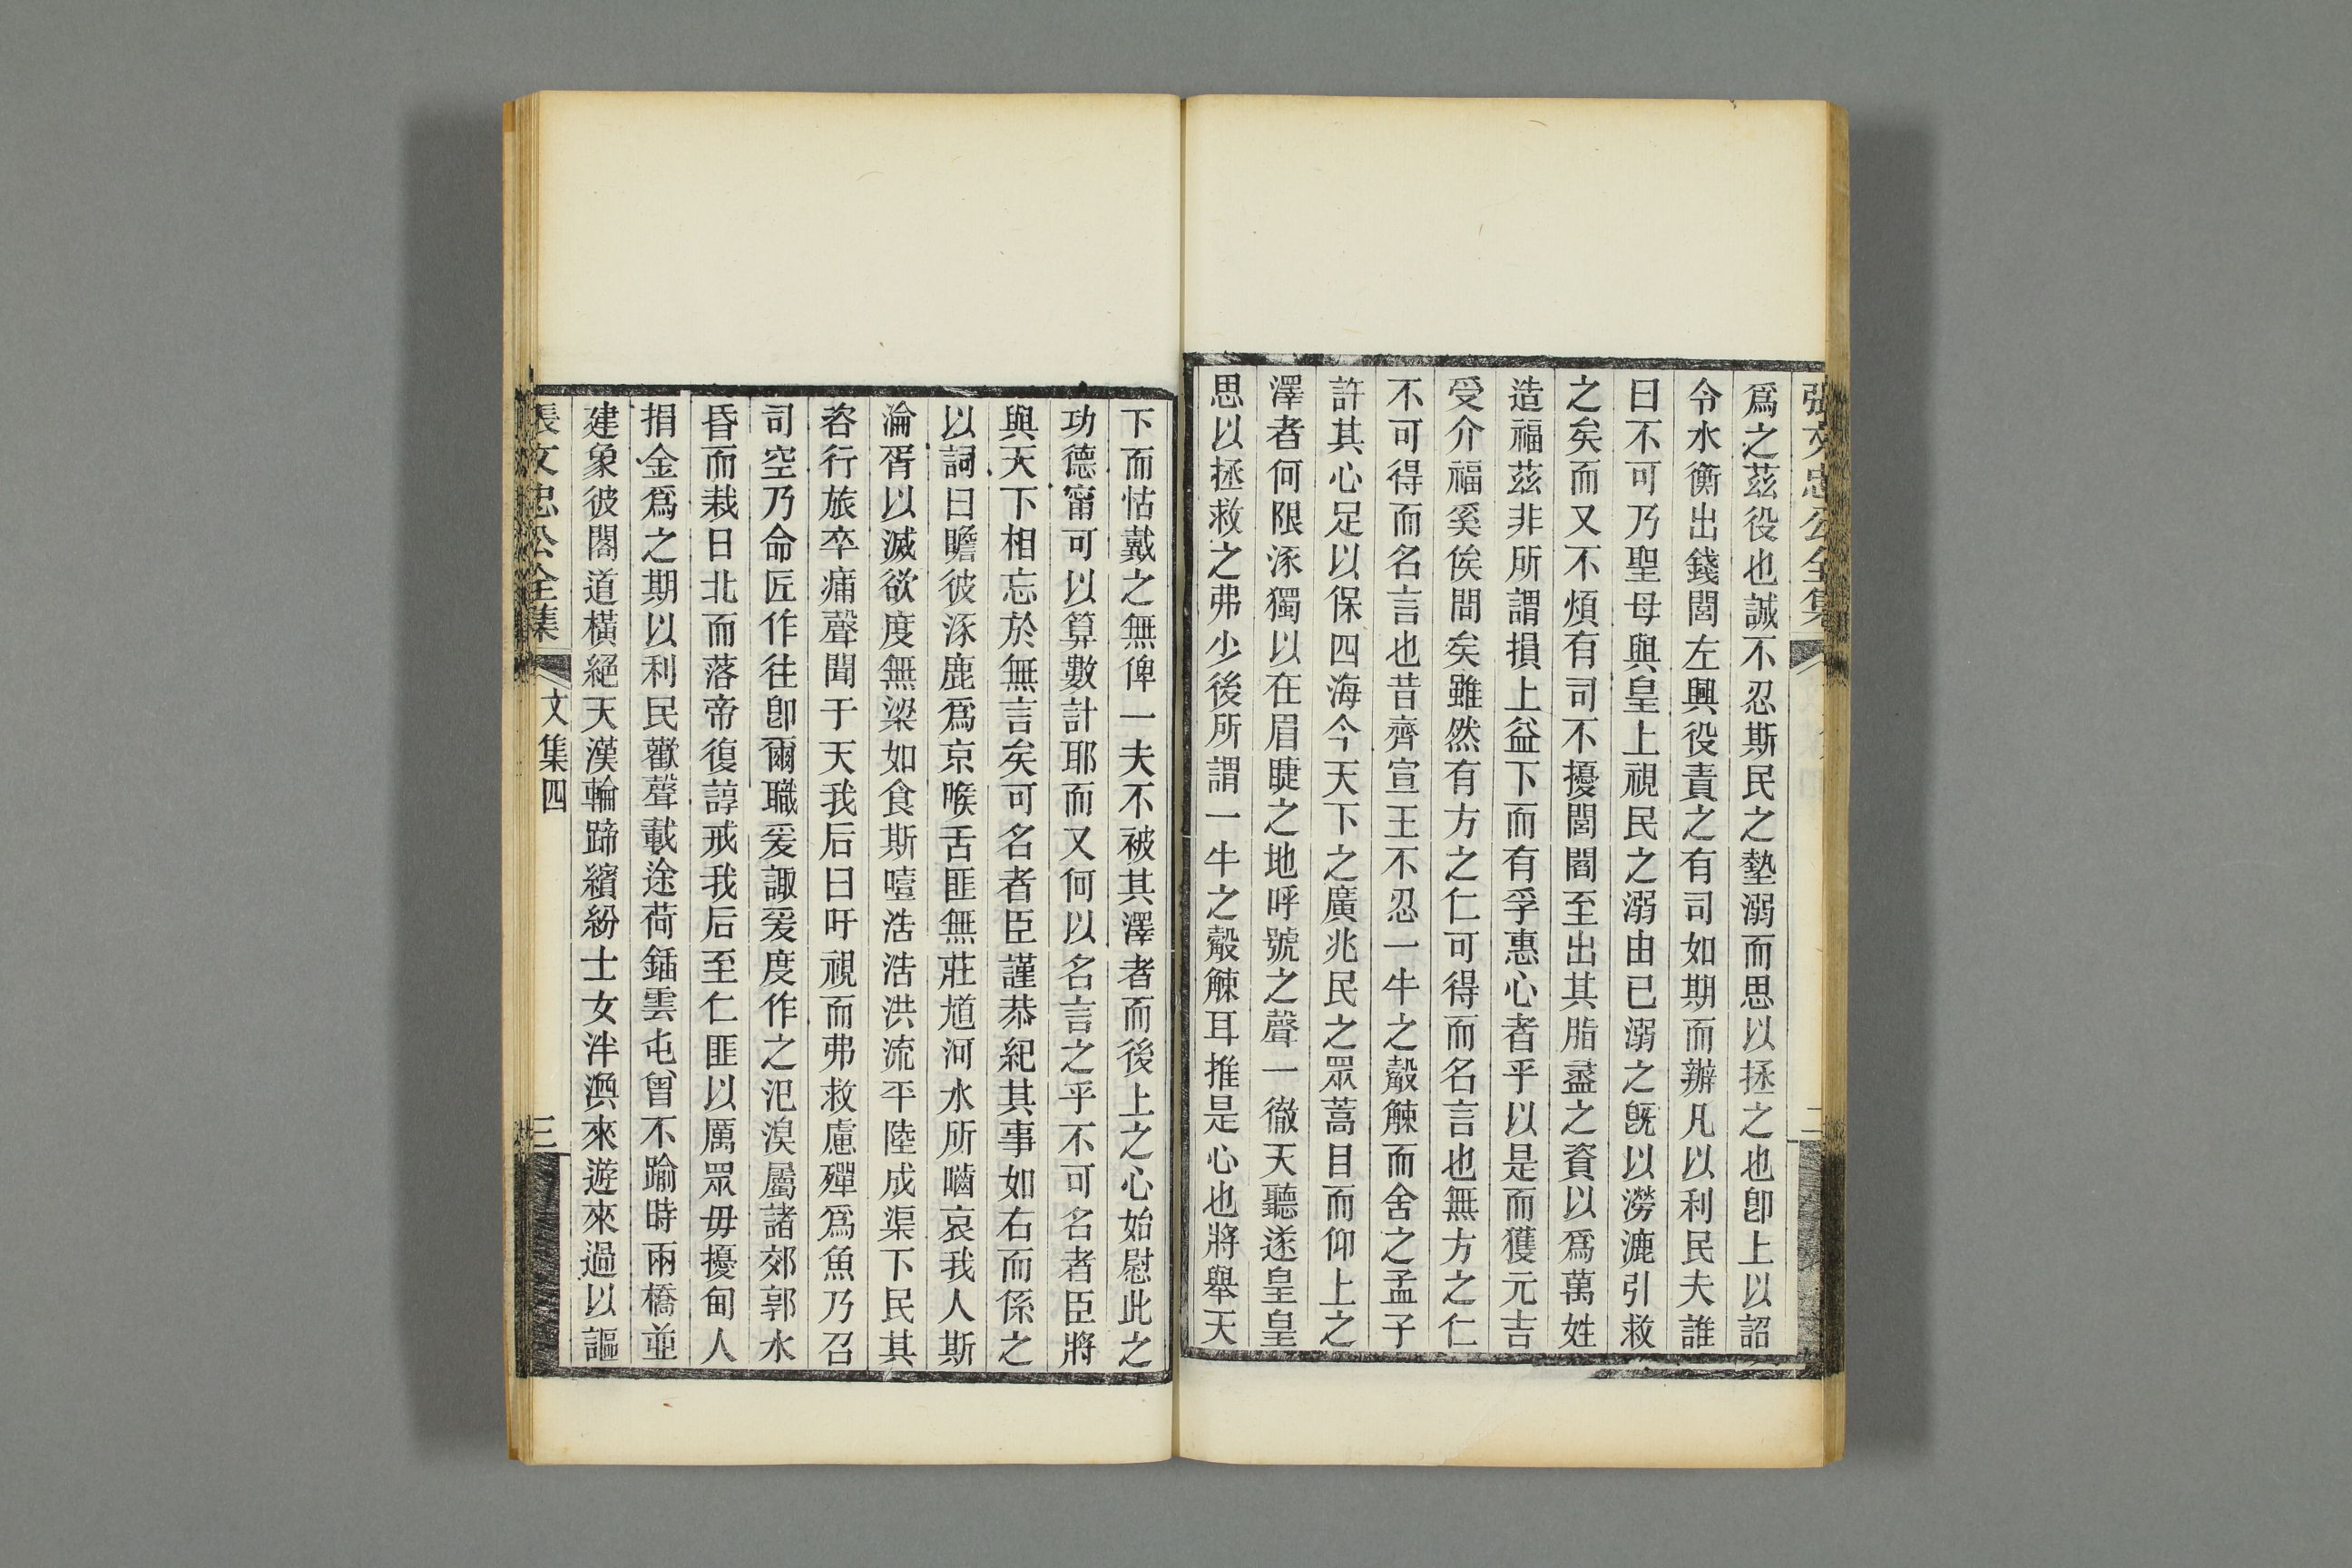 張文忠公全集
二
爲之茲役也誠不忍斯民之墊溺而思以拯之也卽上以詔
令水衡出錢閭左興役責之有司如期而辦凡以利民夫誰
曰不可乃聖母與皇上視民之溺由已溺之旣以澇漉引救
之矣而又不煩有司不擾閭閻至出其脂盝之資以爲萬姓
造福茲非所謂損上益下而有孚惠心者乎以是而獲元吉
受介福奚俟問矣雖然有方之仁可得而名言也無方之仁
不可得而名言也昔齊宣王不忍一牛之觳觫而舍之孟子
許其心足以保四海今天下之廣兆民之眾蒿目而仰上之
澤者何限涿獨以在眉睫之地呼號之聲一徹天聽遂皇皇
思以拯救之弗少後所謂一牛之觳觫耳推是心也將舉天
下而怙戴之無俾一夫不被其澤者而後上之心始慰此之
功德甯可以算數計耶而又何以名言之乎不可名者臣將
與天下相忘於無言矣可名者臣謹恭紀其事如右而係之
以詞曰瞻彼涿鹿爲京喉舌匪無莊馗河水所嚙哀我人斯
淪胥以滅欲度無梁如食斯噎浩浩洪流平陸成渠下民其
咨行旅卒痡聲聞于天我后曰吁視而弗救慮殫爲魚乃召
司空乃命匠作往卽爾職爰諏爰度作之氾湨屬諸郊郭水
昏而栽日北而落帝復諄戒我后至仁匪以厲眾毋擾甸人
捐金爲之期以利民歡聲載途荷鍤雲屯曾不踰時兩橋並
建象彼閣道橫絕天漢輪蹄繽紛士女泮渙來遊來過以謳
張文忠公全集
文集四
三